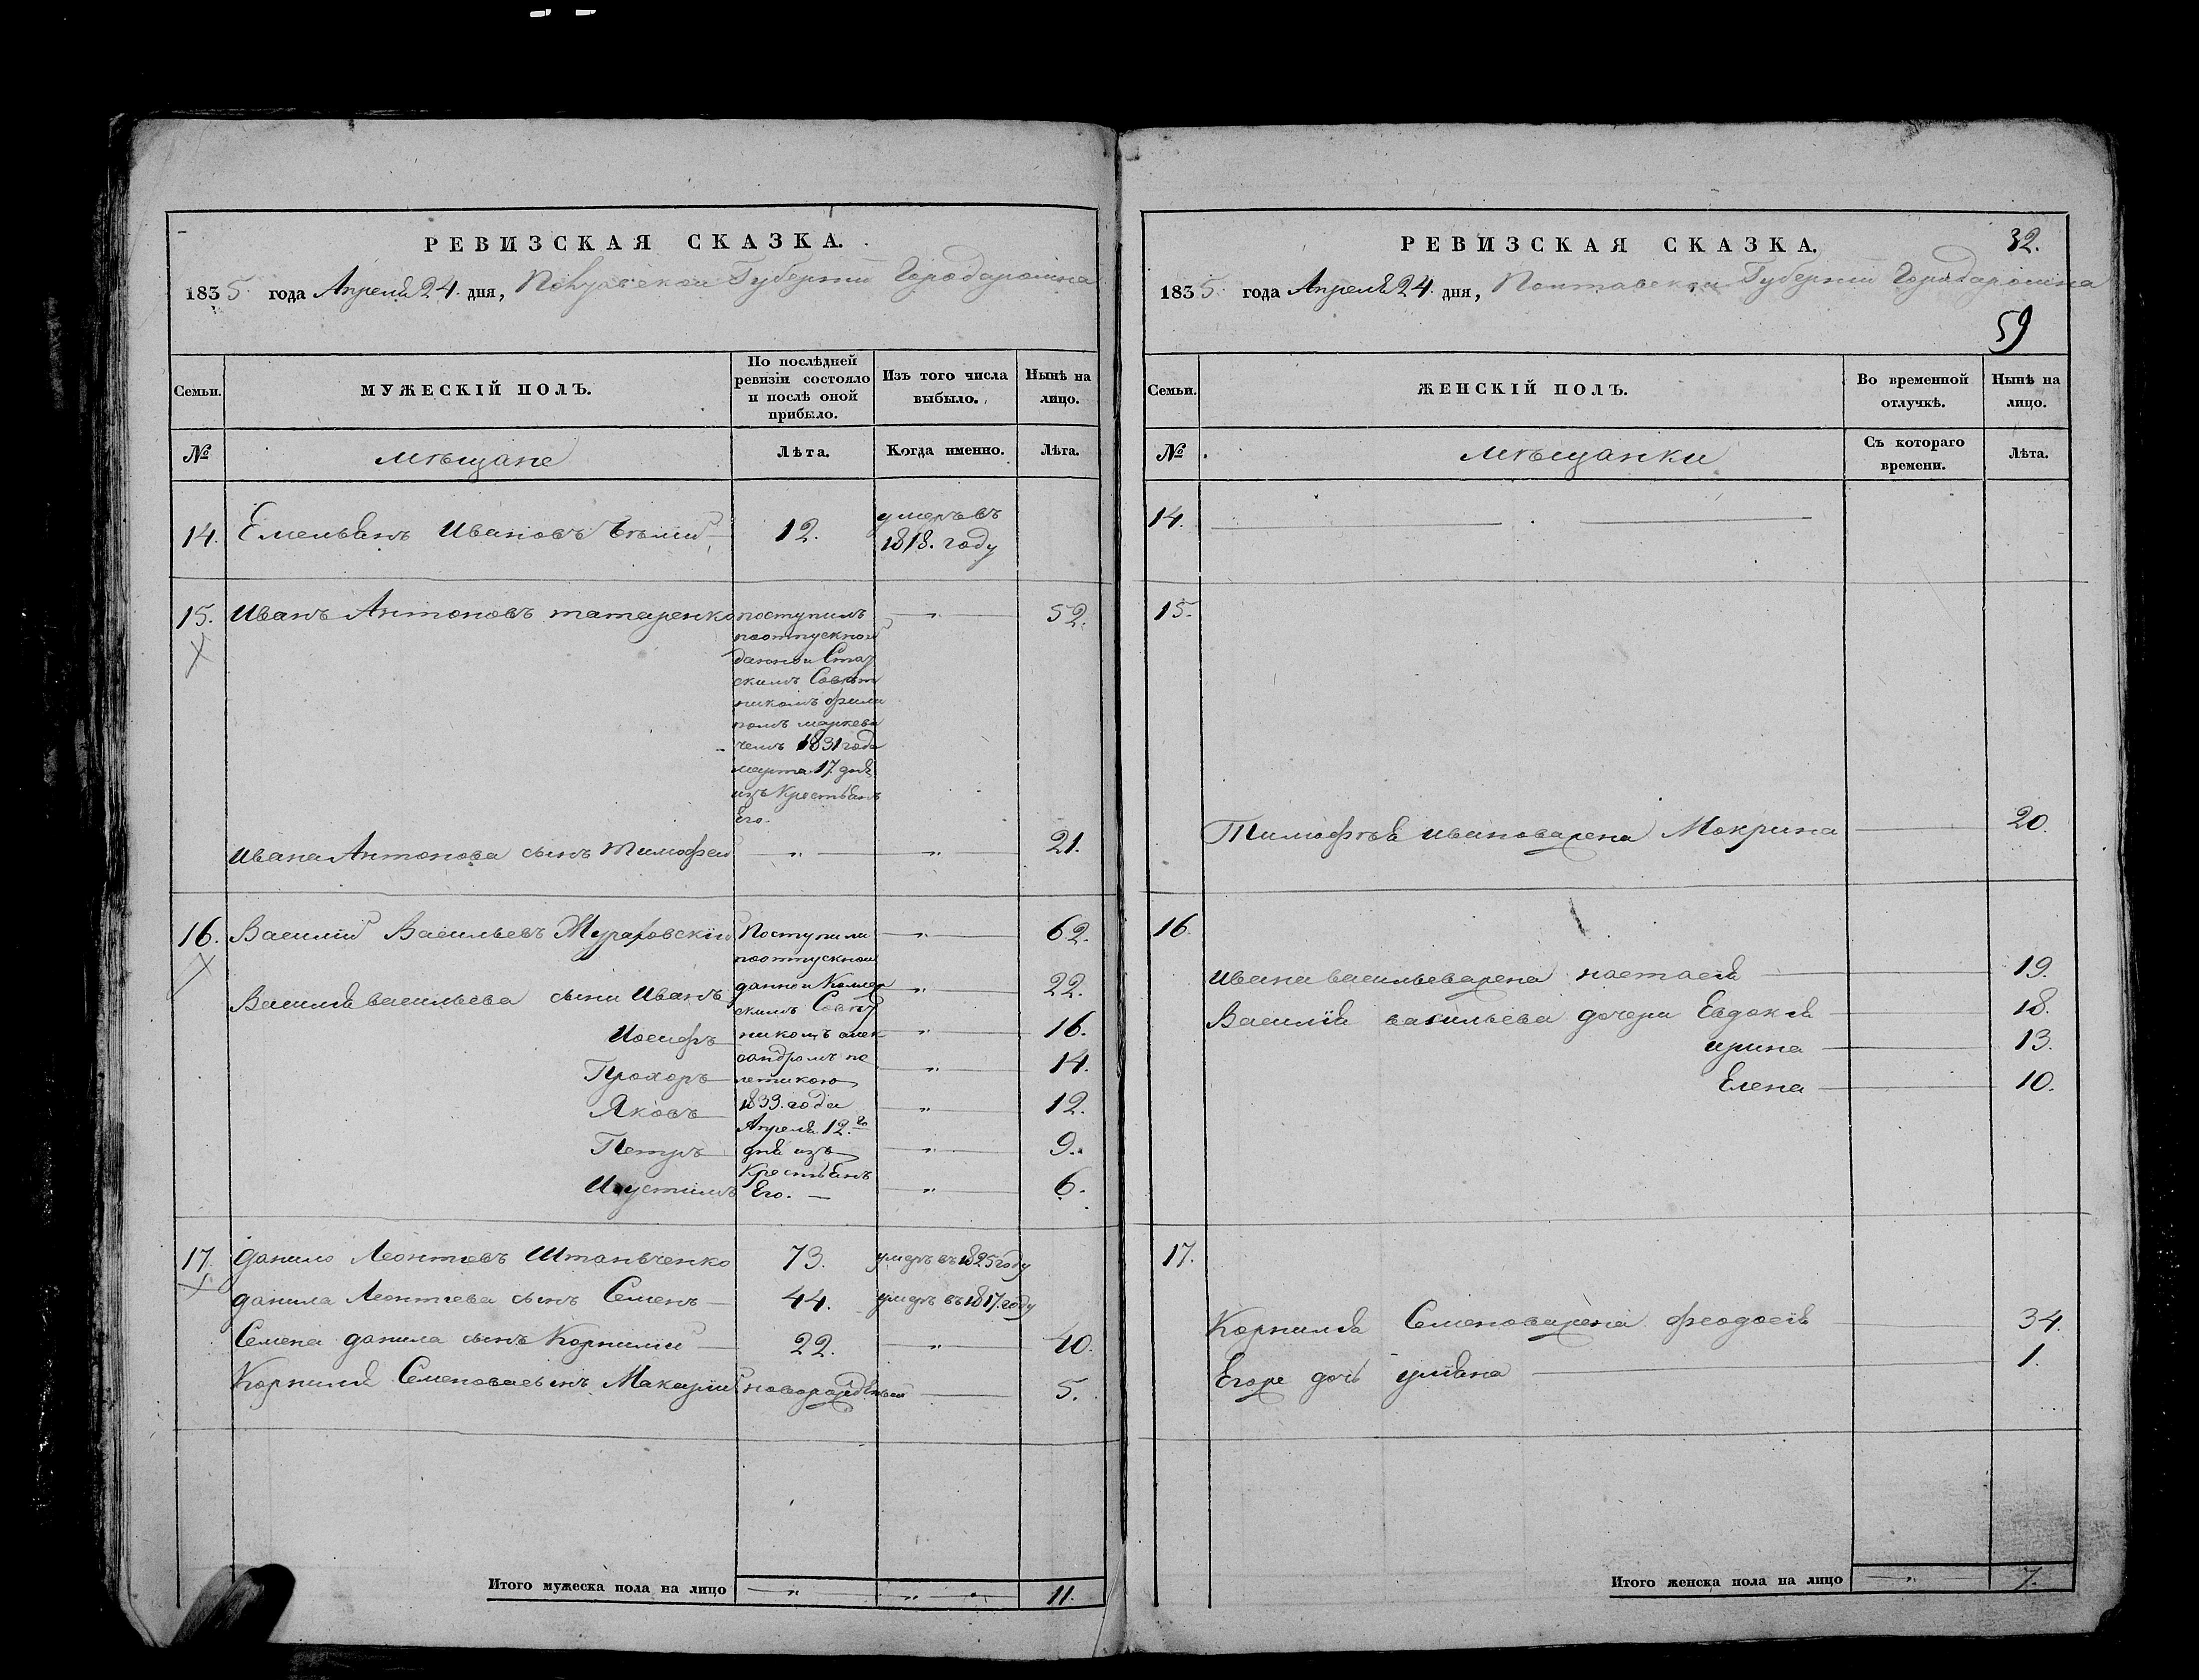 РЕВИЗСКАЯ СКАЗКА.
1835 года Апреля 24. дня, Губернии Города ромна
Семьи.
МУЖЕСКІЙ ПОЛЪ.
По послѣдней
ревизіи состояло
и послѣ оной
прибыло.
Изъ того числа
выбыло.
Нынѣ на
лицо.
№
мѣщане
Лѣта.
Когда именно.
Лѣта.
14. Емельянъ Ивановъ 12. умеръ въ
1818. году
15. Иванъ Антоновъ татаренко поступилъ „ 52.
поотпускной
данной Стат
скимъ Совѣт
никомъ Фили
помъ маркеви
чемъ 1831 года
марта 17. дня
изъ Крестьянъ
Его.
Ивана Антонова сынъ Тимофей „ „ 21.
16. Василий Васильевъ Поступили „ 62.
поотпускной
Василия васильева сыни Иванъ данной Коллеж „ 22.
скимъ Совѣт
Иосифъ никомъ алек „ 16.
Прохоръ сандромъ по „ 14.
летикою
Яковъ 1833. года „ 12.
Апреля 12.го
Петръ дня изъ „ 9.
Крестьянъ
Иустинъ Его. „ 6.
17. Данило Леонтіевъ Штаньченко 73. умеръ въ 1825 году
данила Леонтіева сынъ Семенъ 44. умеръ въ 1817. году
Семена данила сынъ Корнилий 22. „ 40.
Корнилия Семенова сынъ Макарий новорожденный 5.
Итого мужеска пола на лицо „ „ „ 11.
РЕВИЗСКАЯ СКАЗКА. 32.
1835 года Апреля 24. дня, Полтавской Губернии Города ромна
59
Семьи.
ЖЕНСКІЙ ПОЛЪ.
Во временной
отлучкѣ.
Нынѣ на
лицо.
№
мѣщанки
Съ котораго
времени.
Лѣта.
14.
15.
Тимофѣя иванова жена Мокрина 20.
16.
ивана васильева жена настасія 19.
Василія васильева дочери Евдокія 18.
ирина 13.
Елена 10.
17.
Корнилія Семенова жена феодосія 34.
Егоже дочь уліяна 1.
Итого женска пола на лицо „ 7.